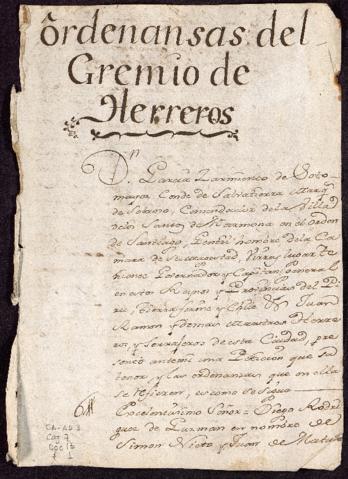 ôrdenansas del
Gremio de
Herreros
Dn
Garcia Sarmiento de Soto-
mayor Conde de Salvatierra Marq
de Sobroso, Comendador de la Villa
de los Santos de Maymona en el orden
de Santiago, Gentil hombre de la Ca
mara de su Magestad, Virrey lugar te
niente Governador y Capitan general
en estos Reynos y Provincias del Pi
ru, tierra firme y Chile &. Juan
Ramon y demas maestros Herre
ros, y serrajeros de esta Ciudad, pre
sento antemi una Peticion que su
tenor, y las ordenansas que en ella
se refieren, es como se sigue
Excelentisimo Señor = Diego Rodri
guez de Gusman en nombre de
Simon Nieto y Juan de
CA-AD 3
Caj 7
Doc 15
f 1